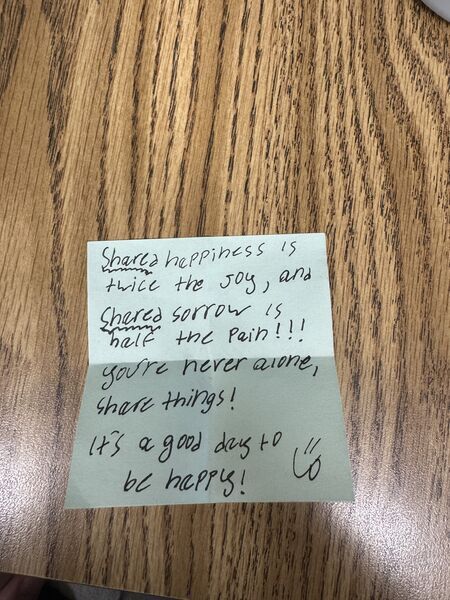 Shared happiness is
twice the joy, and
Shared sorrow is
half the pain!!!
you're never alone,
share things!
It's a good day to
be happy!